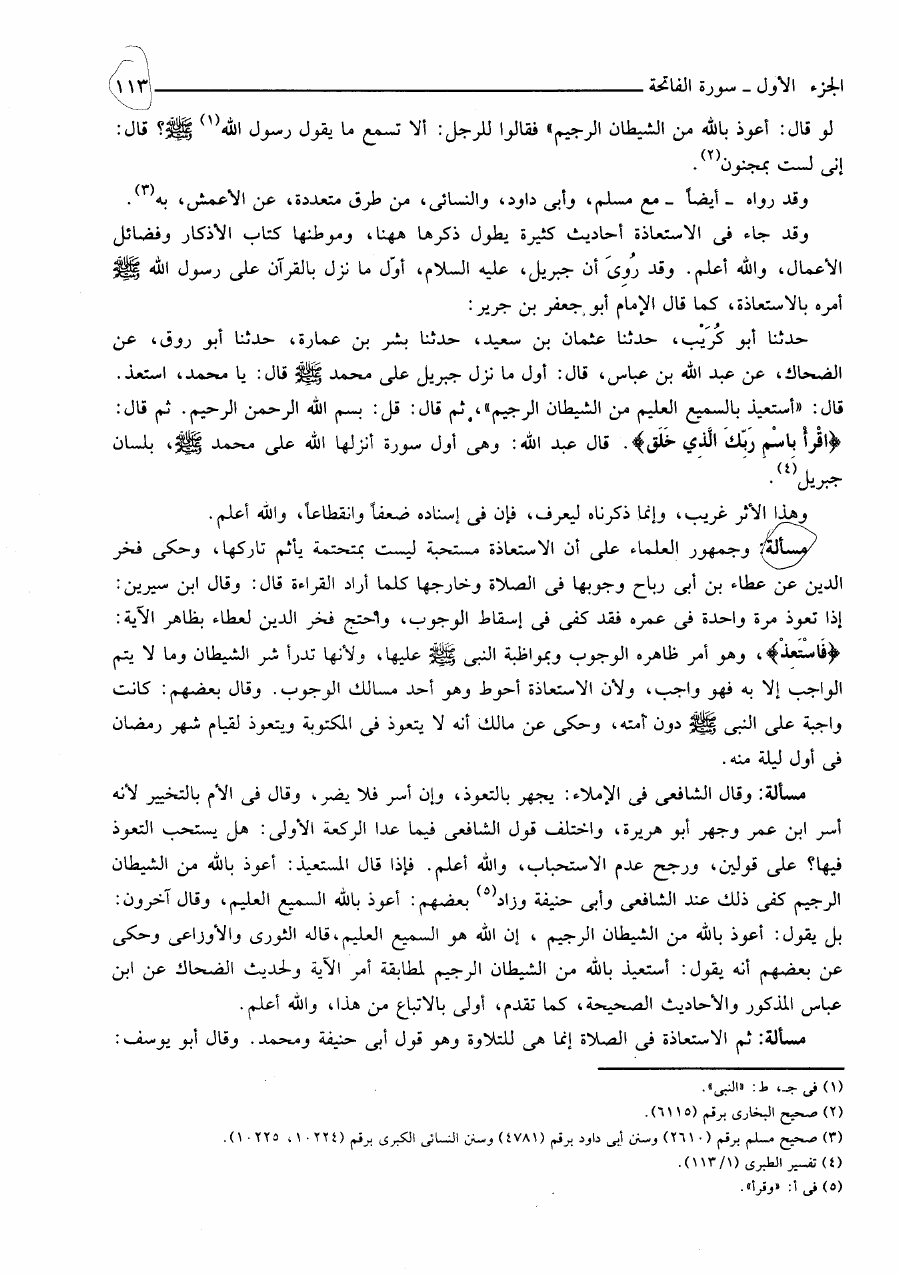 الجزء الأول ـ سورة الفاتحة ١١٣
لو قال: أعوذ بالله من الشيطان الرجيم» فقالوا للرجل: ألا تسمع ما يقول رسول الله(١) ﷺ؟ قال:
إنى لست بمجنون(٢).
وقد رواه ـ أيضاً ـ مع مسلم، وأبى داود، والنسائى، من طرق متعددة، عن الأعمش، به(٣).
وقد جاء فى الاستعاذة أحاديث كثيرة يطول ذكرها ههنا، وموطنها كتاب الأذكار وفضائل
الأعمال، والله أعلم. وقد رُوِىَ أن جبريل، عليه السلام، أوّل ما نزل بالقرآن على رسول الله ﷺ
أمره بالاستعاذة، كما قال الإمام أبو جعفر بن جرير:
حدثنا أبو كُرَيْب، حدثنا عثمان بن سعيد، حدثنا بشر بن عمارة، حدثنا أبو روق، عن
الضحاك، عن عبد الله بن عباس، قال: أول ما نزل جبريل على محمد ﷺ قال: يا محمد، استعذ.
قال: «أستعيذ بالسميع العليم من الشيطان الرجيم»، ثم قال: قل: بسم الله الرحمن الرحيم. ثم قال:
﴿اقْرَأْ بِاسْمِ رَبِّكَ الَّذِي خَلَق﴾. قال عبد الله: وهى أول سورة أنزلها الله على محمد ﷺ، بلسان
جبريل(٤).
وهذا الأثر غريب، وإنما ذكرناه ليعرف، فإن فى إسناده ضعفاً وانقطاعاً، والله أعلم.
مسألة: وجمهور العلماء على أن الاستعاذة مستحبة ليست بمتحتمة يأثم تاركها، وحكى فخر
الدين عن عطاء بن أبى رباح وجوبها فى الصلاة وخارجها كلما أراد القراءة قال: وقال ابن سيرين:
إذا تعوذ مرة واحدة فى عمره فقد كفى فى إسقاط الوجوب، واحتج فخر الدين لعطاء بظاهر الآية:
﴿فَاسْتَعِذْ﴾، وهو أمر ظاهره الوجوب وبمواظبة النبى ﷺ عليها، ولأنها تدرأ شر الشيطان وما لا يتم
الواجب إلا به فهو واجب، ولأن الاستعاذة أحوط وهو أحد مسالك الوجوب. وقال بعضهم: كانت
واجبة على النبى ﷺ دون أمته، وحكى عن مالك أنه لا يتعوذ فى المكتوبة ويتعوذ لقيام شهر رمضان
فى أول ليلة منه.
مسألة: وقال الشافعى فى الإملاء: يجهر بالتعوذ، وإن أسر فلا يضر، وقال فى الأم بالتخيير لأنه
أسر ابن عمر وجهر أبو هريرة، واختلف قول الشافعى فيما عدا الركعة الأولى: هل يستحب التعوذ
فيها؟ على قولين، ورجح عدم الاستحباب، والله أعلم. فإذا قال المستعيذ: أعوذ بالله من الشيطان
الرجيم كفى ذلك عند الشافعى وأبى حنيفة وزاد(٥) بعضهم: أعوذ بالله السميع العليم، وقال آخرون:
بل يقول: أعوذ بالله من الشيطان الرجيم ، إن الله هو السميع العليم،قاله الثورى والأوزاعى وحكى
عن بعضهم أنه يقول: أستعيذ بالله من الشيطان الرجيم لمطابقة أمر الآية ولحديث الضحاك عن ابن
عباس المذكور والأحاديث الصحيحة، كما تقدم، أولى بالاتباع من هذا، والله أعلم.
مسألة: ثم الاستعاذة فى الصلاة إنما هى للتلاوة وهو قول أبى حنيفة ومحمد. وقال أبو يوسف:
(١) فى جـ، ط: «النبى».
(٢) صحيح البخارى برقم (٦١١٥).
(٣) صحيح مسلم برقم (٢٦١٠) وسنن أبى داود برقم (٤٧٨١) وسنن النسائى الكبرى برقم (١٠٢٢٤، ١٠٢٢٥).
(٤) تفسير الطبرى (١/ ١١٣).
(٥) فى أ: «وقرأ».